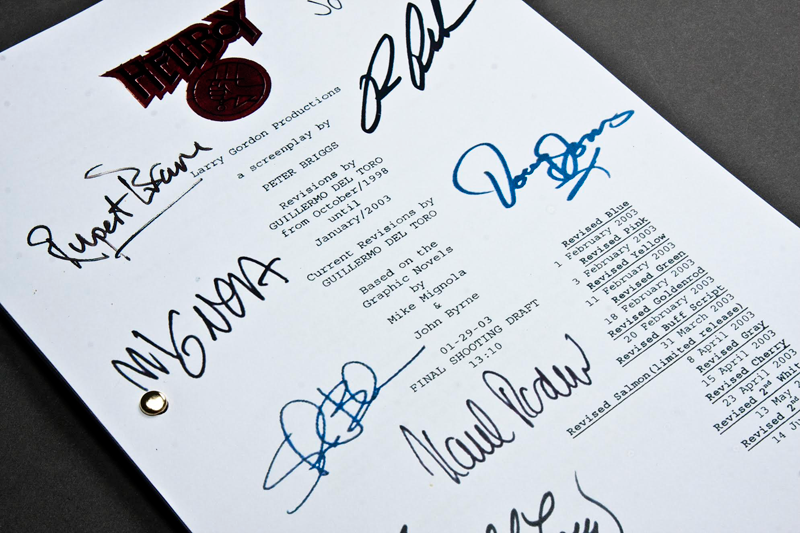 HELLBOY
Larry Gordon Productions
a screenplay by
PETER BRIGGS
Revisions by
GUILLERMO DEL TORO
from October/1998
until
January/2003
Current Revisions by
GUILLERMO DEL TORO
Based on the
Graphic Novels
by
Mike Mignola
&
John Byrne
01-29-03
FINAL SHOOTING DRAFT
13:10
Revised Blue
1 February 2003
Revised Pink
3 February 2003
Revised Yellow
11 February 2003
Revised Green
18 February 2003
Revised Goldenrod
20 February 2003
Revised Buff Script
31 March 2003
Revised Salmon(limited release)
8 April 2003
Revised Gray
15 April 2003
Revised Cherry
23 April 2003
Revised 2nd Whit
13 May 2
Revised 2nd
14 Ju
Rupert
MIGNOLA
Doug Jones
Karel Roden